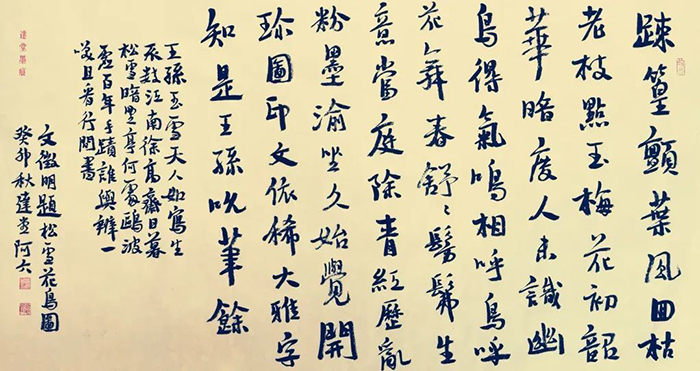 疎篁顫葉風回枯
老枝點玉梅花初韶
華暗度人未識幽
鳥得氣鳴相呼鳥呼
花舞春舒〻髣髴生
意當庭除青紅歷亂
粉墨渝坐久始覺開
珎圖印文依稀大雅字
知是王孫吮筆餘
王孫玉雪天人如寫生
江南徐高齋日暮
松雪暗亭何處鷗波
虛百年手蹟誰與辨一
咲且看行間書
文徵明題松雪花鳥圖
癸卯秋達堂阿六